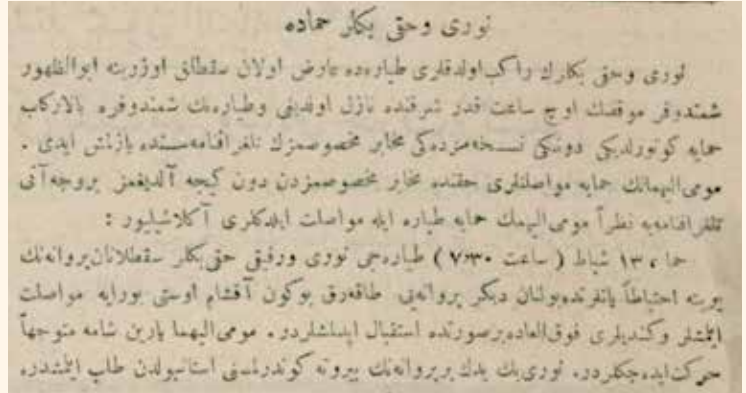 نوری وحقی بكلر حماده
نوری وحقی بكلرك راكب اولدقلری طیارەده عارض اولان سقطلق اوزرینه ابوالظهور
شمندوفر موقفنك اوچ ساعت قدر شرقنده نازل اولدیغی وطیارەنك شمندوفره بالاركاب
حمایه كوتورلدیكی دونكی نسخەمزدەكی مخابر مخصوصمزك تلغرافنامەسنده یازلمش ایدی .
مومی الیهمانك حمایه مواصلتلری حقنده مخابر مخصوصمزدن دون كیجه آلدیغمز بروجەآتی
تلغرافنامەیه نظراً مومی الیهمك حمایه طیاره ایله مواصلت ایلدكلری آكلاشیلیور :
حما ، ١٣ شباط ( ساعت ٧،٣٠ ) طیارەجی نوری ورفیقی حقی بكلر سقطلانان پروانەنك
یرینه احتیاطاً یانلرنده بولنان دیكر پروانەیی طاقەرق بوكون آقشام اوستی بورایه مواصلت
ایتمشلر وكندیلری فوق العاده برصورتده استقبال ایدلمشلردر . مومی الیهما یارین شامه متوجهاً
حركت ایدەجكلردر. نوری بك یدك بر پروانەنك بیروته كوندرلمسنی استانبولدن طلب ایتمشدر.